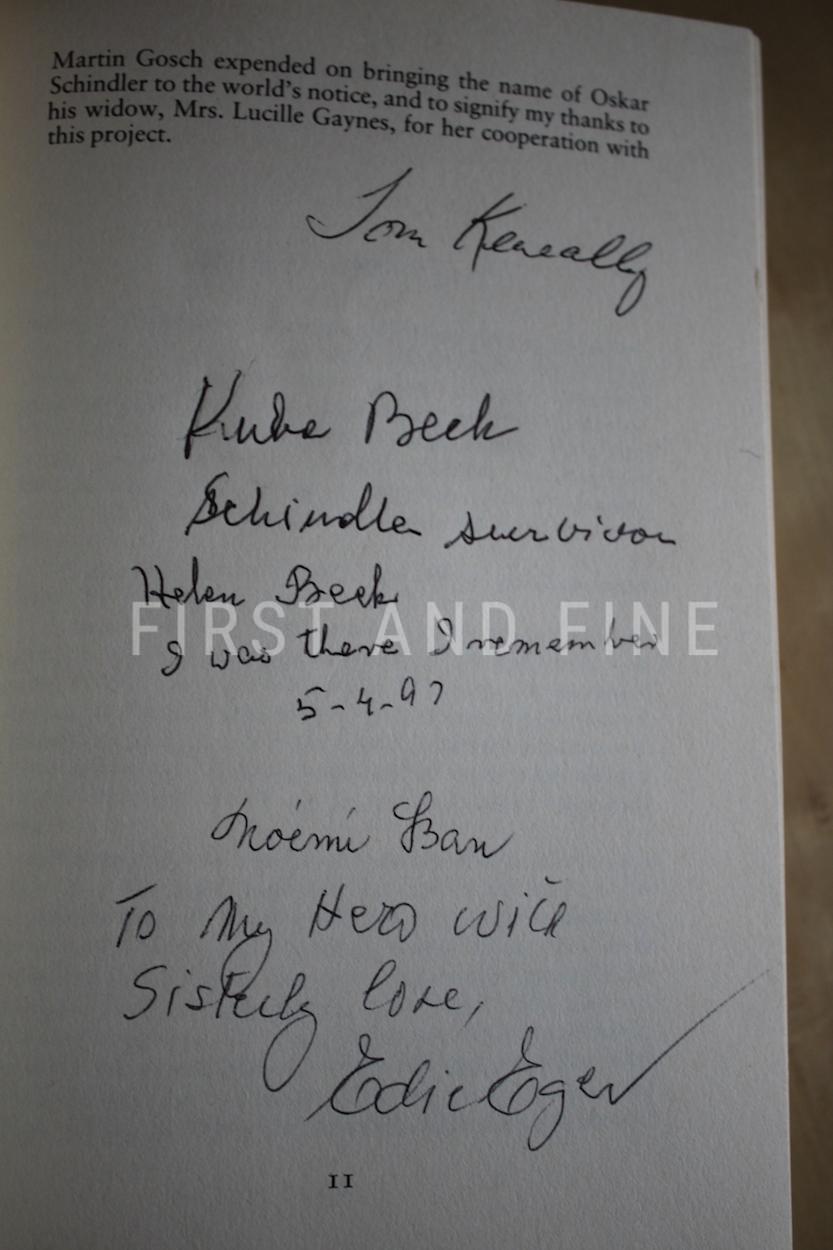 Martin Gosch expended on bringing the name of Oskar
Schindler to the world's notice, and to signify my thanks to
his widow, Mrs. Lucille Gaynes, for her cooperation with
this project.
Tom Keneally
Kuba Beck
Schindler survivor
Helen Beck
FIRST AND FINE
I was there I remember
5-4-97
Noémi Ban
To My Hero with
Sisterly love,
Edie Eger
11